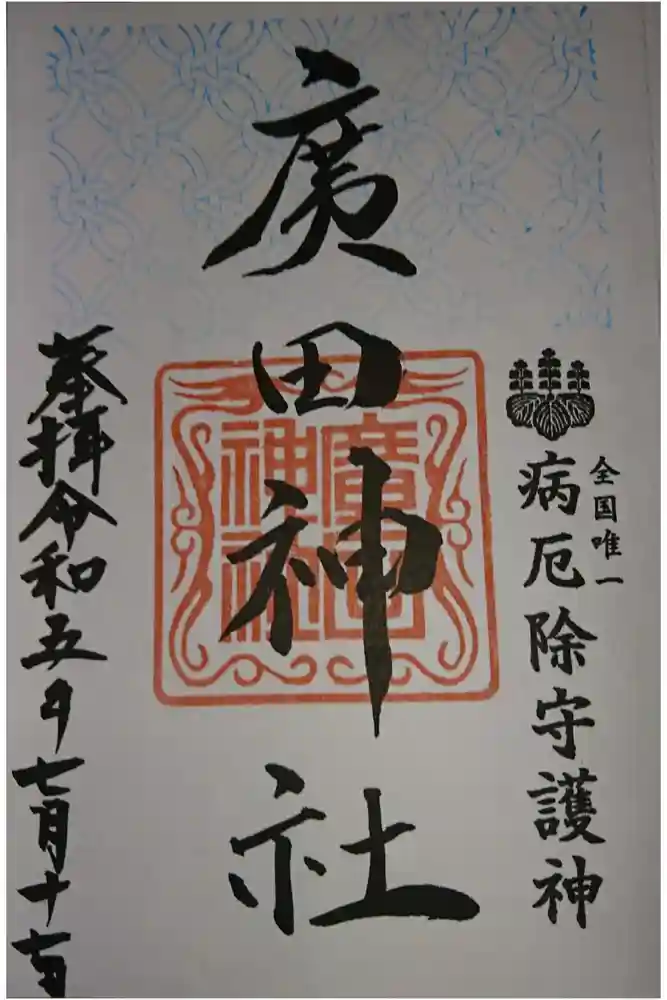 全国唯一
病厄除守護神
廣田神社
廣田
神社
奉拝令和五年七月十七日